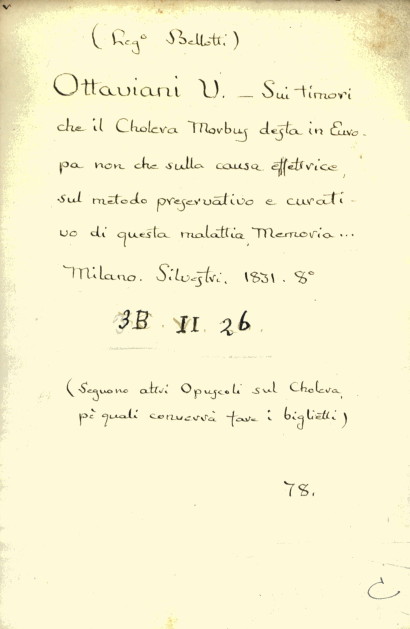 (Leg° Bellotti)
Ottaviani V. — Sui timori
che il Cholera Morbus desta in Euro-
pa non che sulla causa effettrice,
sul metodo preservativo e curati-
vo di questa malattia, Memoria...
Milano. Silvestri. 1831. 8°
3B II 26
(Seguono altri Opuscoli sul Cholera,
pẽ quali converrà fare i biglietti)
78.
C